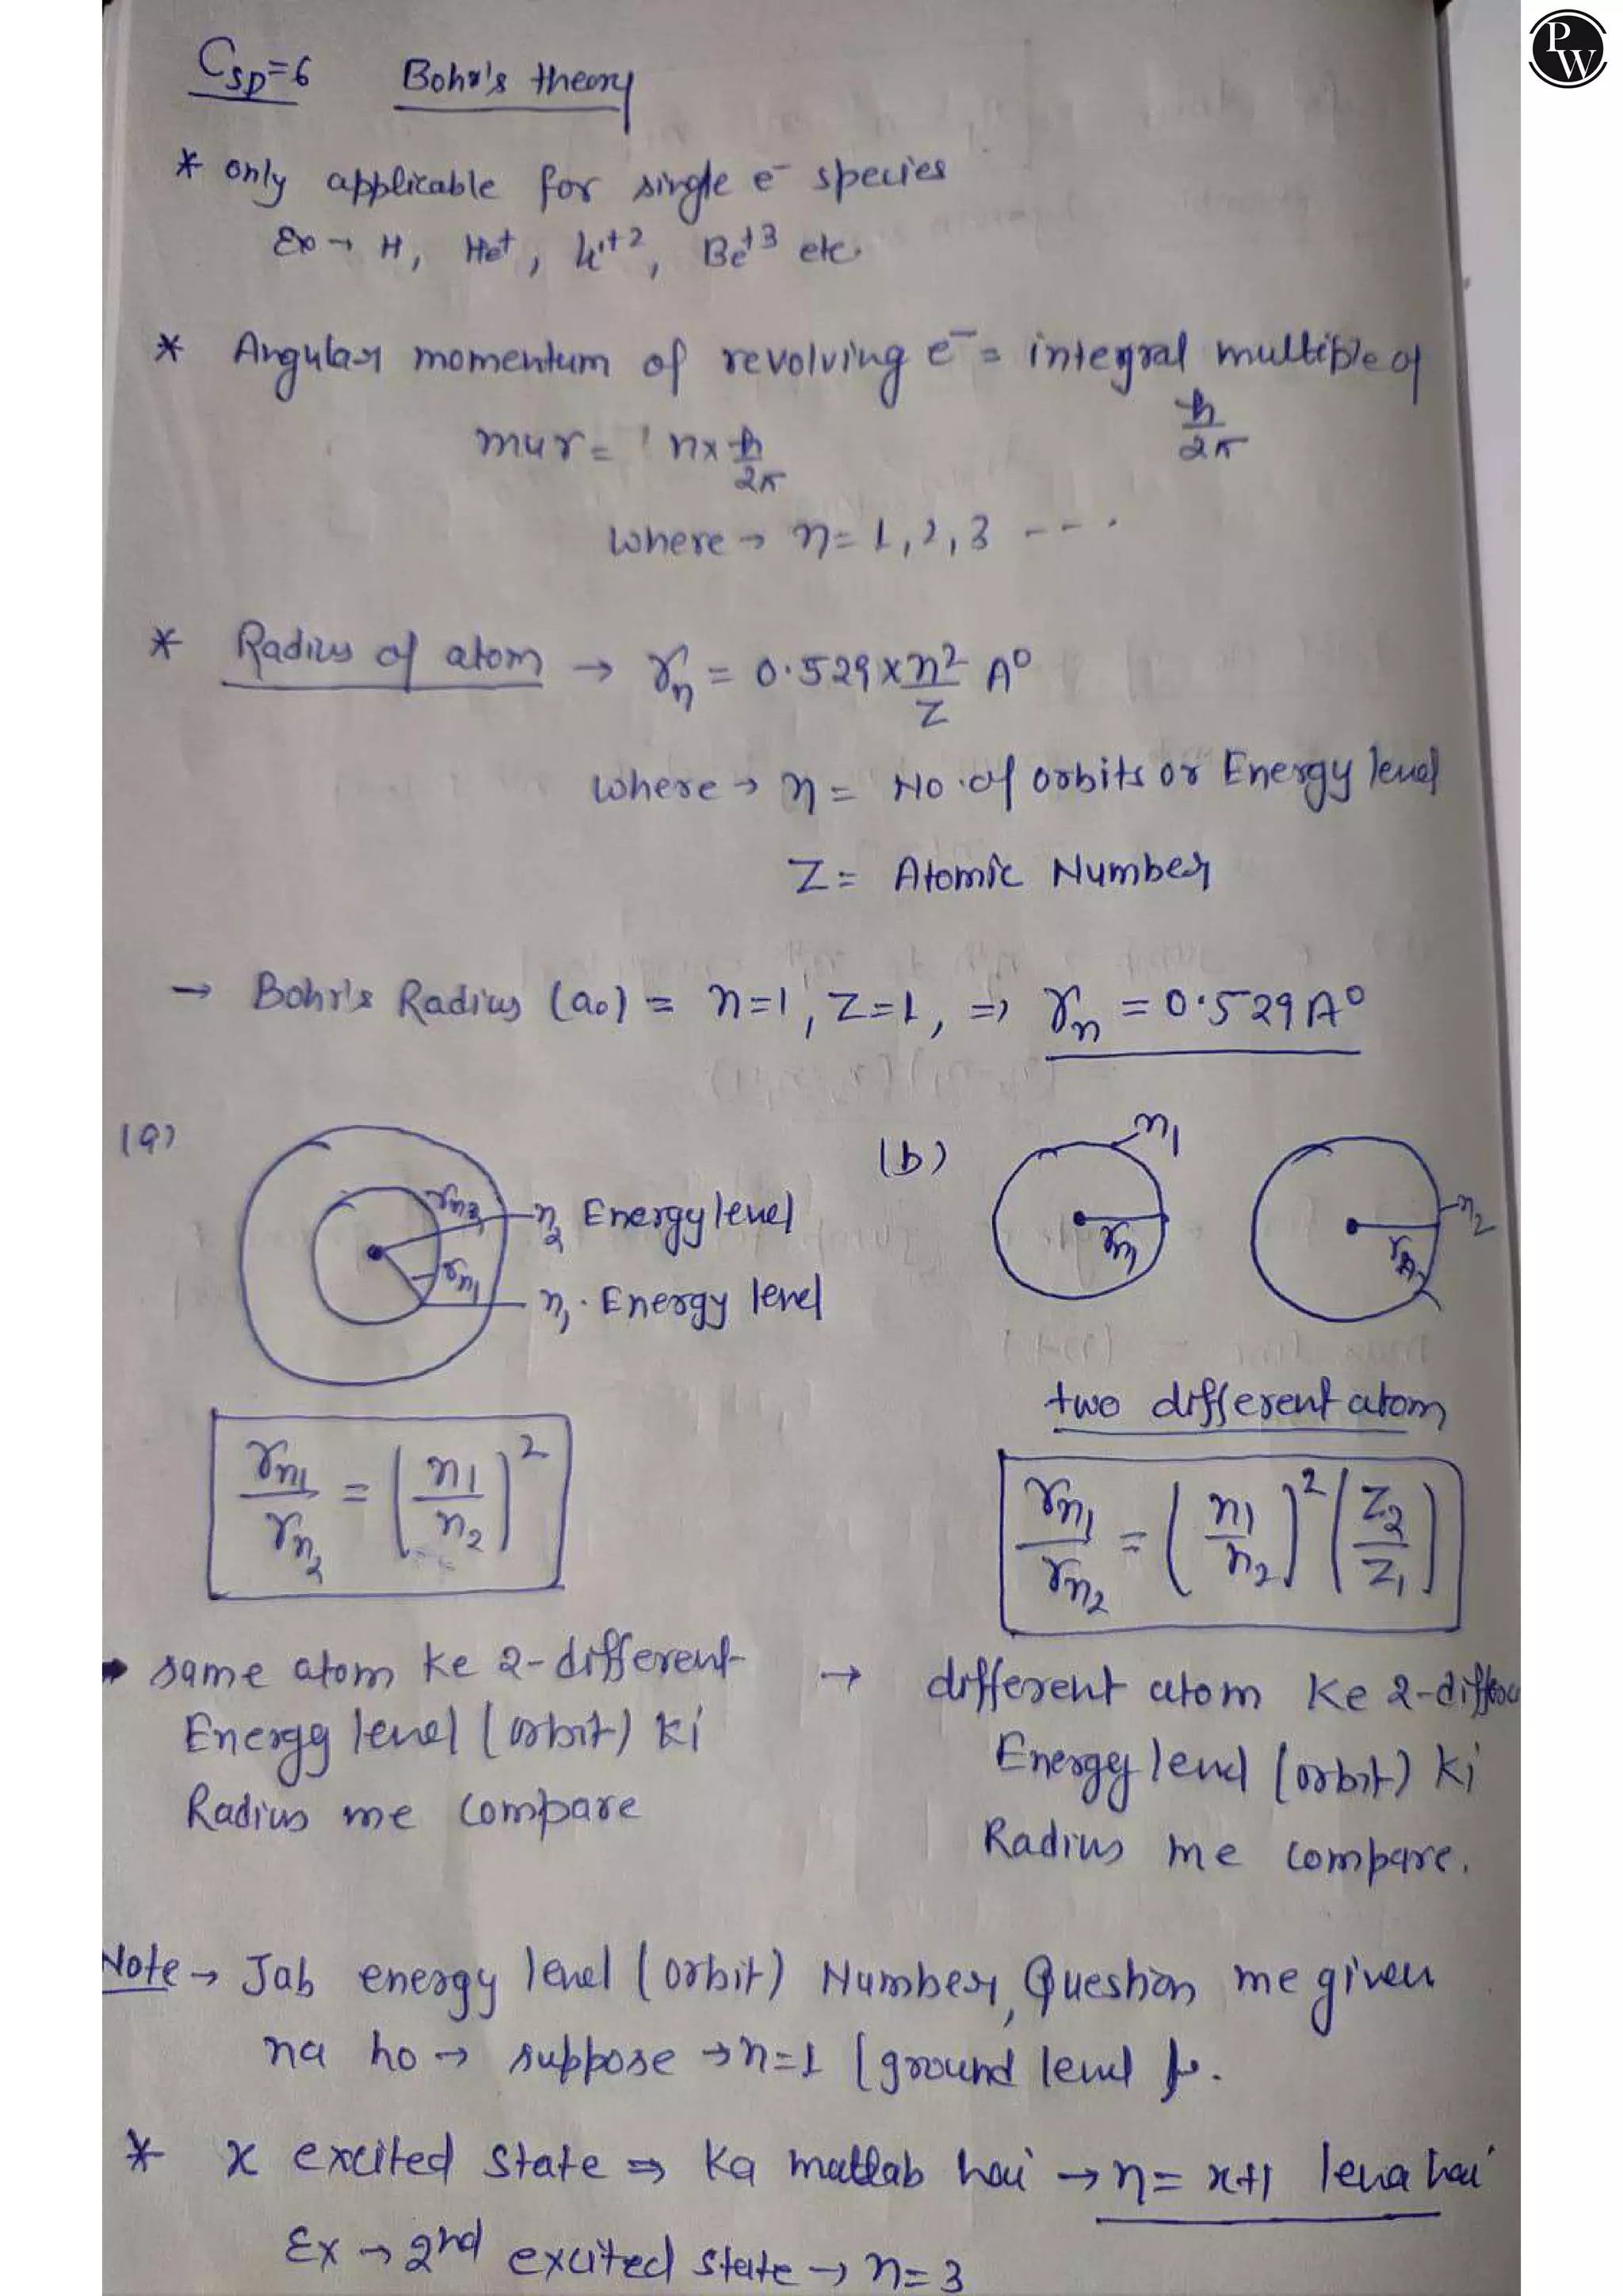 PW
Csp=6 Bohr's theory
* only applicable for single e⁻ species
Ex → H, He⁺, Li⁺², Be⁺³ etc.
* Angular momentum of revolving e⁻ = integral multiple of
h/2π
mur = n × h/2π
where → n = 1, 2, 3 ----
* Radius of atom → rₙ = 0.529 × n²/Z A°
where → n = No. of orbits or Energy level
Z = Atomic Number
→ Bohr's Radius (a₀) = n=1, Z=1, ⇒ rₙ = 0.529 A°
(a)
rn₂ n₂ Energy level
rn₁ n₁ Energy level
(b) n₁ n₂
rn₁ rn₂
two different atom
rn₁/rn₂ = (n₁/n₂)²
rn₁/rn₂ = (n₁/n₂)² (Z₂/Z₁)
→ same atom ke 2-different
Energy level (orbit) ki
Radius me compare
→ different atom ke 2-differ
Energy level (orbit) ki
Radius me compare.
Note → Jab energy level (orbit) Number, Question me given
na ho → suppose → n=1 (ground level).
* x excited state ⇒ ka matlab hai → n = x+1 lena hai
Ex → 2nd excited state → n = 3